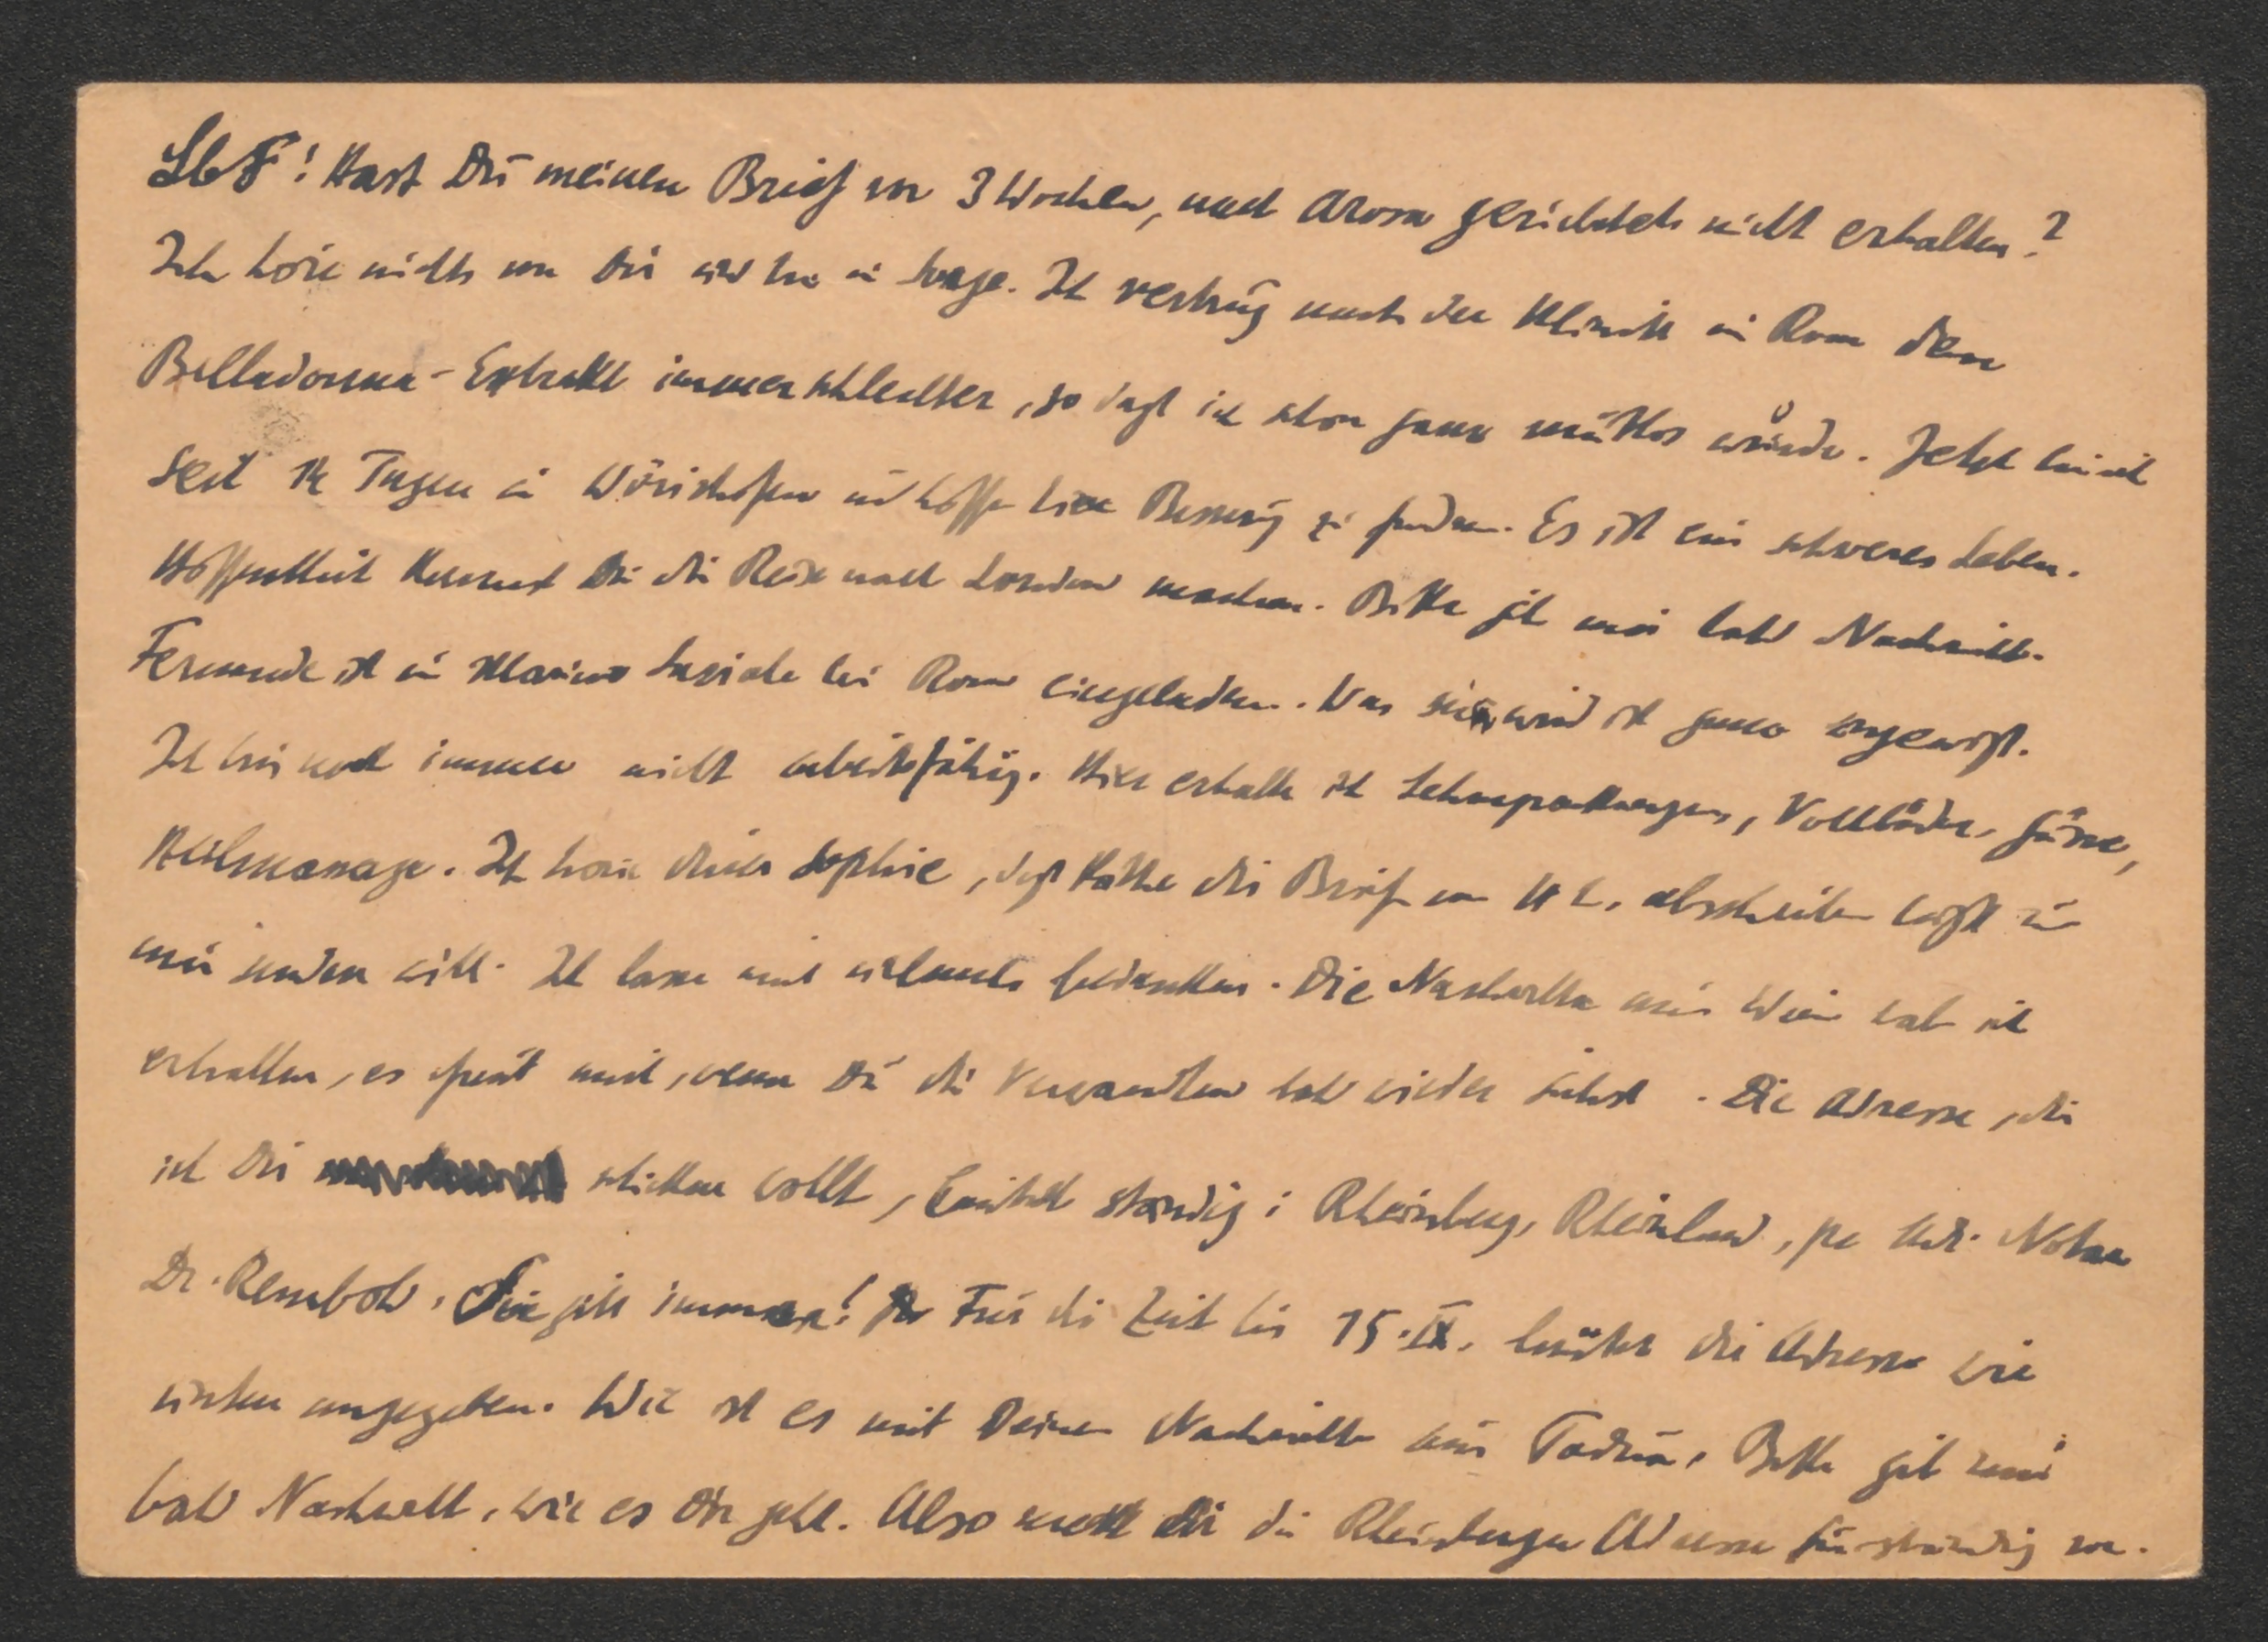 Lb F! Hast Du meinen Brief vor 3 Wochen, nach Arosa gerichtet nicht erhalten?
Ich höre nichts von Dir und bin in Sorge. Ich vertrug nach der Klinik in Rom den
Belladonna-Extrakt immer schlechter, so daß ich schon ganz mutlos wurde. Jetzt bin ich
seit 14 Tagen in Wörishofen und hoffe hier Besserung zu finden. Es ist ein schweres Leben.
Hoffentlich kannst Du die Reise nach London machen. Bitte gib mir bald Nachricht.
ist in Marino Laziale bei Rom eingeladen. Was sein wird ist ganz ungewiß.
Ich bin noch immer nicht arbeitsfähig. Hier erhalte ich Lehmpackungen, Vollbäder, Güsse,
Heilmassage. Ich höre durch Sophie, daß Käthe die Briefe von abschreiben läßt und
mir senden will. Ich lasse mich vielmals bedanken. Die Nachricht aus Wien hab ich
erhalten, es freut mich, wenn Du die Verwandten bald wieder siehst. Die Adresse, die
ich Dir schicken sollt, lautet ständig: Rheinberg, Rheinland, per Adr. Notar
Dr. Rembold. Sie gilt immer! Für die Zeit bis 15.IX. lautet die Adresse wie
unten angegeben. Wie ist es mit Deiner Nachricht aus Padua. Bitte gib mir
bald Nachricht, wie es Dir geht. Also merk Dir die Rheinberger Adresse für ständig vor.